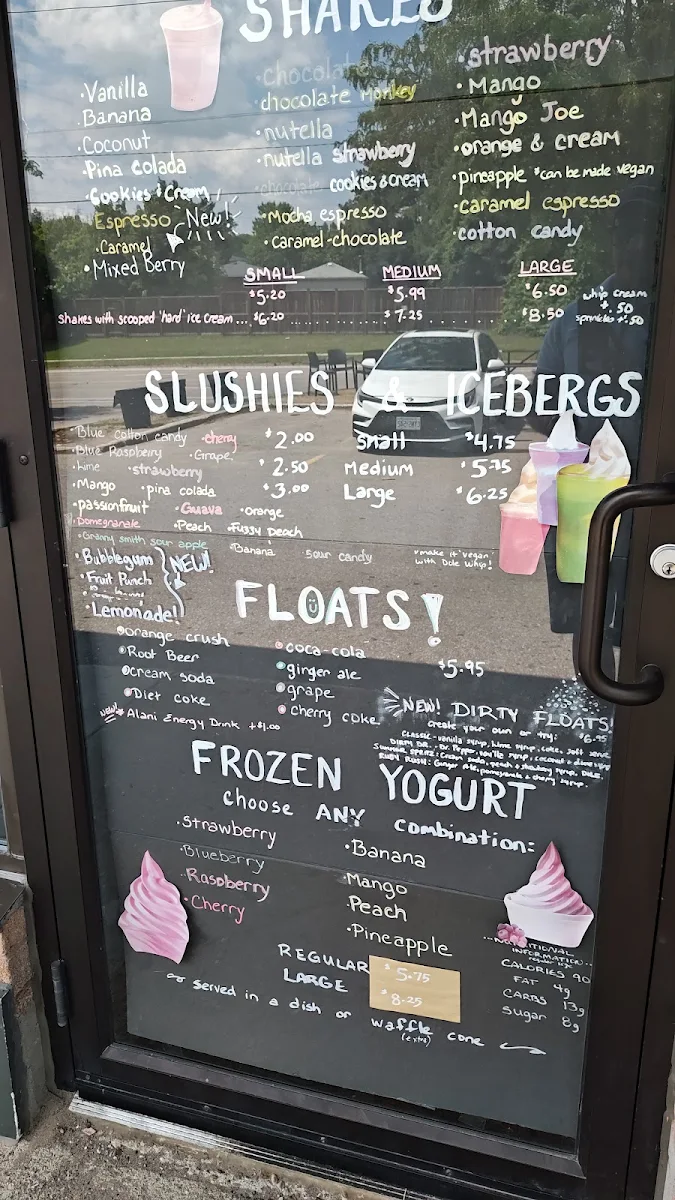 SHAKES
·Vanilla
·Banana
·Coconut
·Pina Colada
·Cookies & Cream
·Espresso New!
·Caramel
·Mixed Berry
·chocolate
·chocolate Monkey
·nutella
·nutella strawberry
·chocolate cookies & cream
·Mocha espresso
·caramel-chocolate
·strawberry
·Mango
·Mango Joe
·orange & cream
·pineapple *can be made vegan
·caramel espresso
·cotton candy
SMALL MEDIUM LARGE
$5.20 $5.99 $6.50
shakes with scooped 'hard' ice cream... $6.20 $7.25 $8.50
whip cream
+.50
sprinkles +.50
SLUSHIES & ICEBERGS
·Blue cotton candy ·cherry
·Blue Raspberry ·Grape
·Lime ·strawberry
·Mango ·pina colada
·passionfruit ·Guava ·orange
·Pomegranate ·Peach ·Fuzzy peach
·Granny smith sour apple ·Banana ·Sour candy
·Bubblegum
·Fruit Punch
NEW!
·Lemonade!
$2.00 small $4.75
$2.50 Medium $5.75
$3.00 Large $6.25
*make it vegan
with Dole Whip!
FLOATS!
orange crush
Root Beer
cream soda
Diet coke
NEW! Alani Energy Drink +$1.00
coca-cola
ginger ale
grape
cherry coke
$5.95
NEW! DIRTY FLOATS!
create your own or try: $6.95
CLASSIC - vanilla syrup, lime syrup, coke, soft serve
DIRTY DR. - Dr. Pepper, vanilla syrup, coconut &
SUMMER Cream soda, peach & syrup, Dole
RUBY RUSH: Ginger Ale, pomegranate & cherry syrup.
FROZEN YOGURT
choose ANY combination:
·Strawberry
·Blueberry
·Raspberry
·Cherry
·Banana
·Mango
·Peach
·Pineapple
REGULAR $5.75
LARGE $8.25
~ served in a dish or waffle cone
(extra)
NUTRITIONAL
INFORMATION
CALORIES 90
FAT 4g
CARBS 13g
Sugar 8g